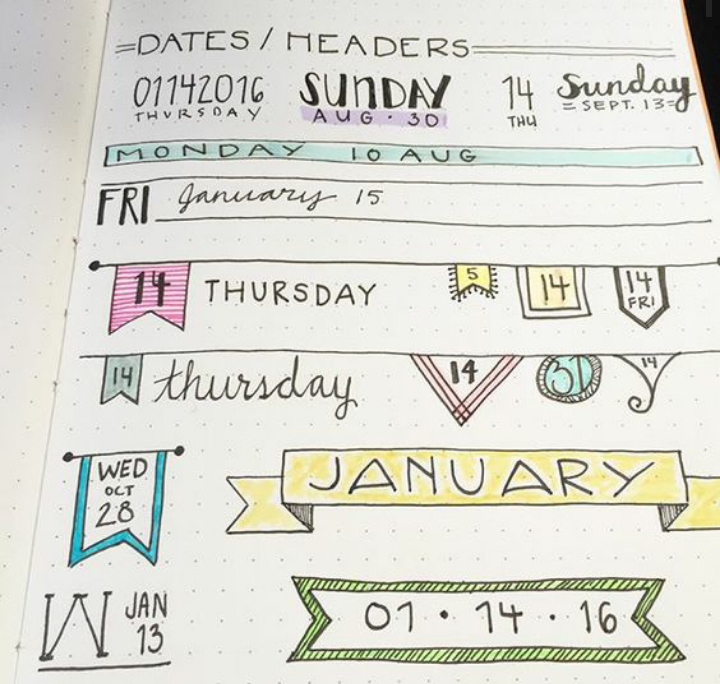 DATES / HEADERS
01142016 SUNDAY 14 Sunday
THURSDAY AUG · 30 THU = SEPT. 13 =
MONDAY 10 AUG
FRI January 15
14 THURSDAY 5 14 14
FRI
14 thursday 14 31 14
WED
OCT
28
JANUARY
W JAN
13
01 · 14 · 16